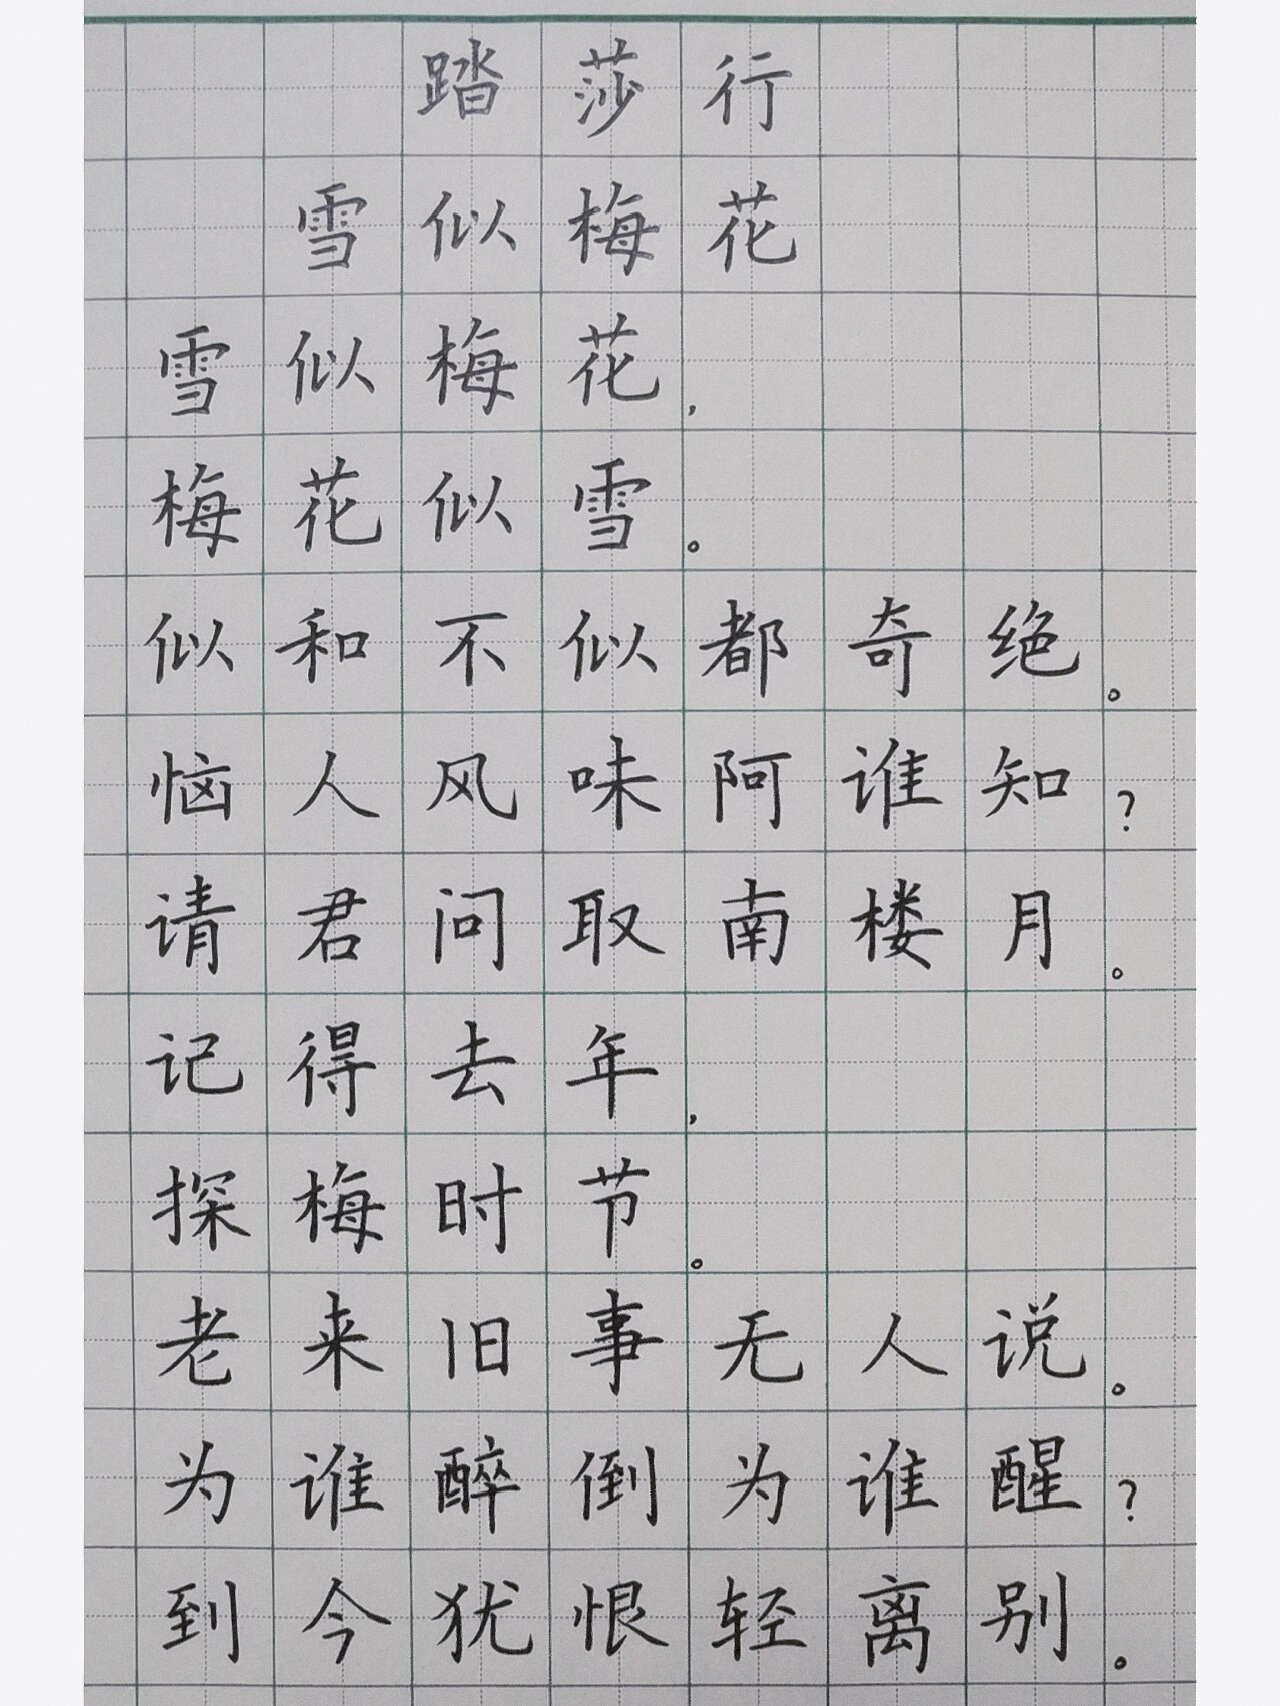 踏莎行
雪似梅花
雪似梅花,
梅花似雪。
似和不似都奇绝。
恼人风味阿谁知?
请君问取南楼月。
记得去年,
探梅时节。
老来旧事无人说。
为谁醉倒为谁醒?
到今犹恨轻离别。